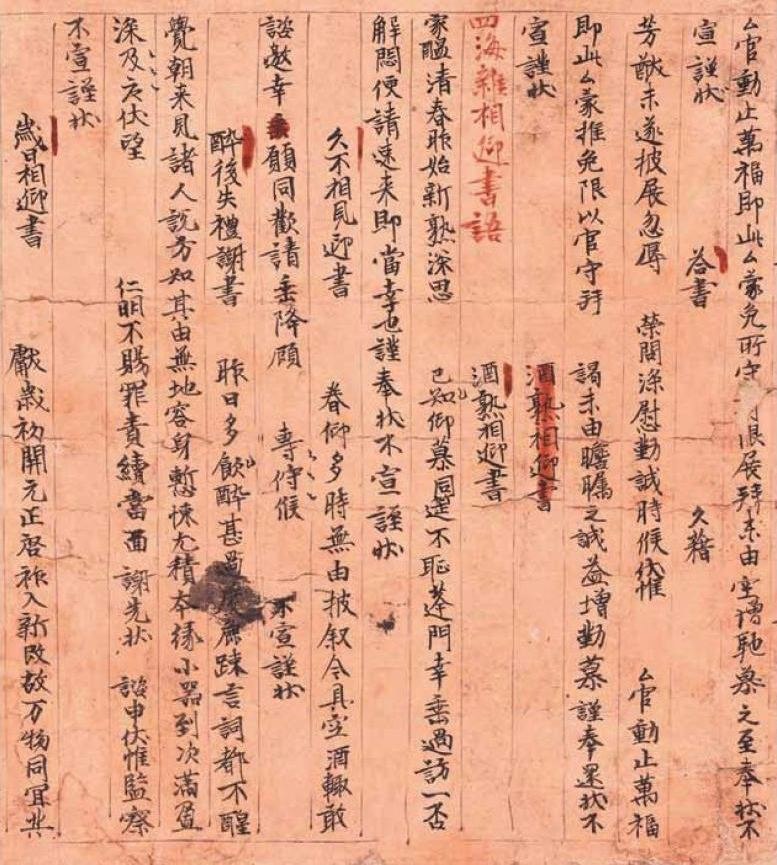 厶官動止萬福即此厶蒙免所守限展拜未由空增馳慕之至奉狀不
宣謹狀　答書　久藉
芳猷未遂披展忽辱　榮問深慰勤誠時候伏惟　厶官動止萬福
即此厶蒙推免限以官守拜　謁未由瞻矚之誠益增勤慕謹奉還狀不
宣謹狀　酒熟相迎書
四海雜相迎書語　酒熟相迎書
家醞清春昨始新熟深思　已知仰慕同筵不恥蓬門幸垂過訪一否
解悶便請速来即當幸也謹奉狀不宣謹狀
久不相見迎書　眷仰多時無由披叙今具空酒輙敢
諮邀幸垂願同歡請垂降顧　專佇候　不宣謹狀
醉後失禮謝書　昨日多飲醉甚過麁踈言詞都不醒
覺朝来見諸人說方知其由無地容身慙悚尤積本緣小器到次滿盈
深及戾伏望　仁明不賜罪責續當面　謝先狀　諮申伏惟監察
不宣謹狀
歲日相迎書　獻歲初開元正啓祚入新改故万物同宜共